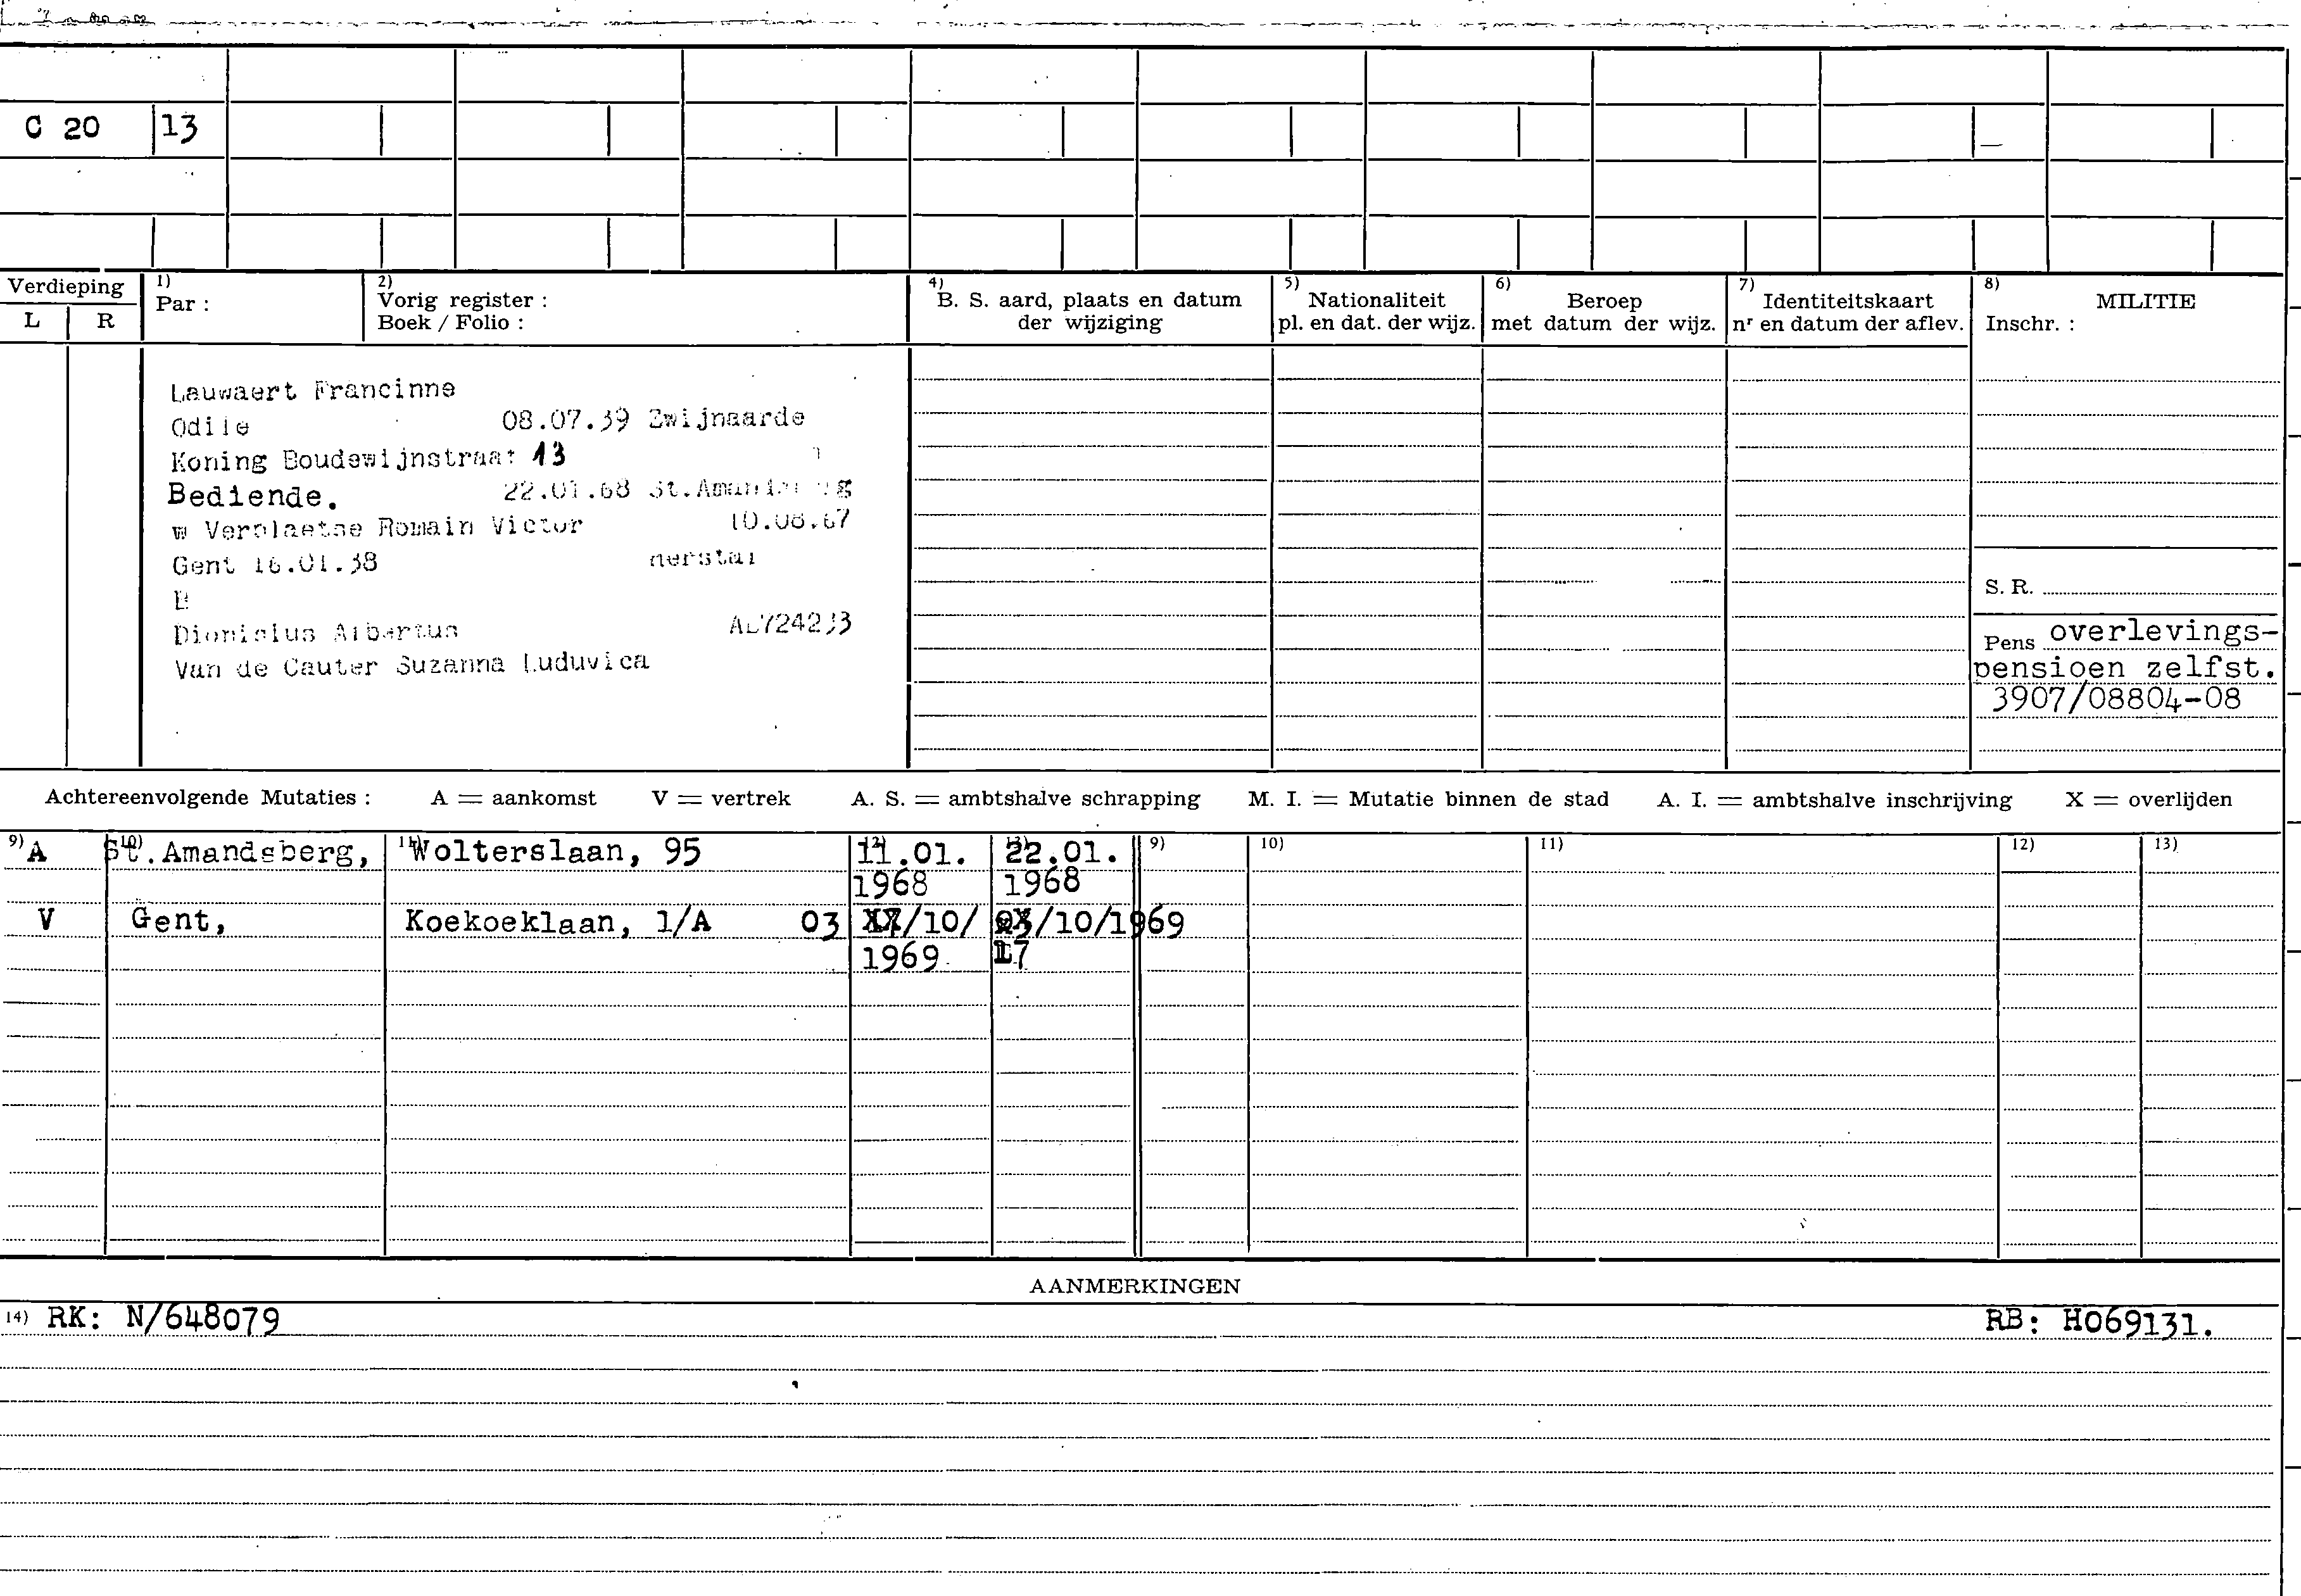 C 20 13
Verdieping
L R
1) Par :
2) Vorig register :
Boek / Folio :
4) B. S. aard, plaats en datum
der wijziging
5) Nationaliteit
pl. en dat. der wijz.
6) Beroep
met datum der wijz.
7) Identiteitskaart
nr en datum der aflev.
8) MILITIE
Inschr. :
Lauwaert Francinne
Odile 08.07.39 Zwijnaarde
Koning Boudewijnstraat 13
Bediende. 22.01.68
w Romain Victor 10.08.67
Gent 16.01.38
B
Dionisius Albertus
Van de Cauter Suzanna Luduvica
S. R.
Pens overlevings-
pensioen zelfst.
3907/08804-08
Achtereenvolgende Mutaties : A = aankomst V = vertrek A. S. = ambtshalve schrapping M. I. = Mutatie binnen de stad A. I. = ambtshalve inschrijving X = overlijden
9) 10) 11) 12) 13) 9) 10) 11) 12) 13)
A St. Amandsberg, Wolterslaan, 95 11.01. 22.01.
1968 1968
V Gent, Koekoeklaan, 1/A 03 /10/ /10/1969
1969 17
AANMERKINGEN
14) RK: N/648079 RB: H069131.